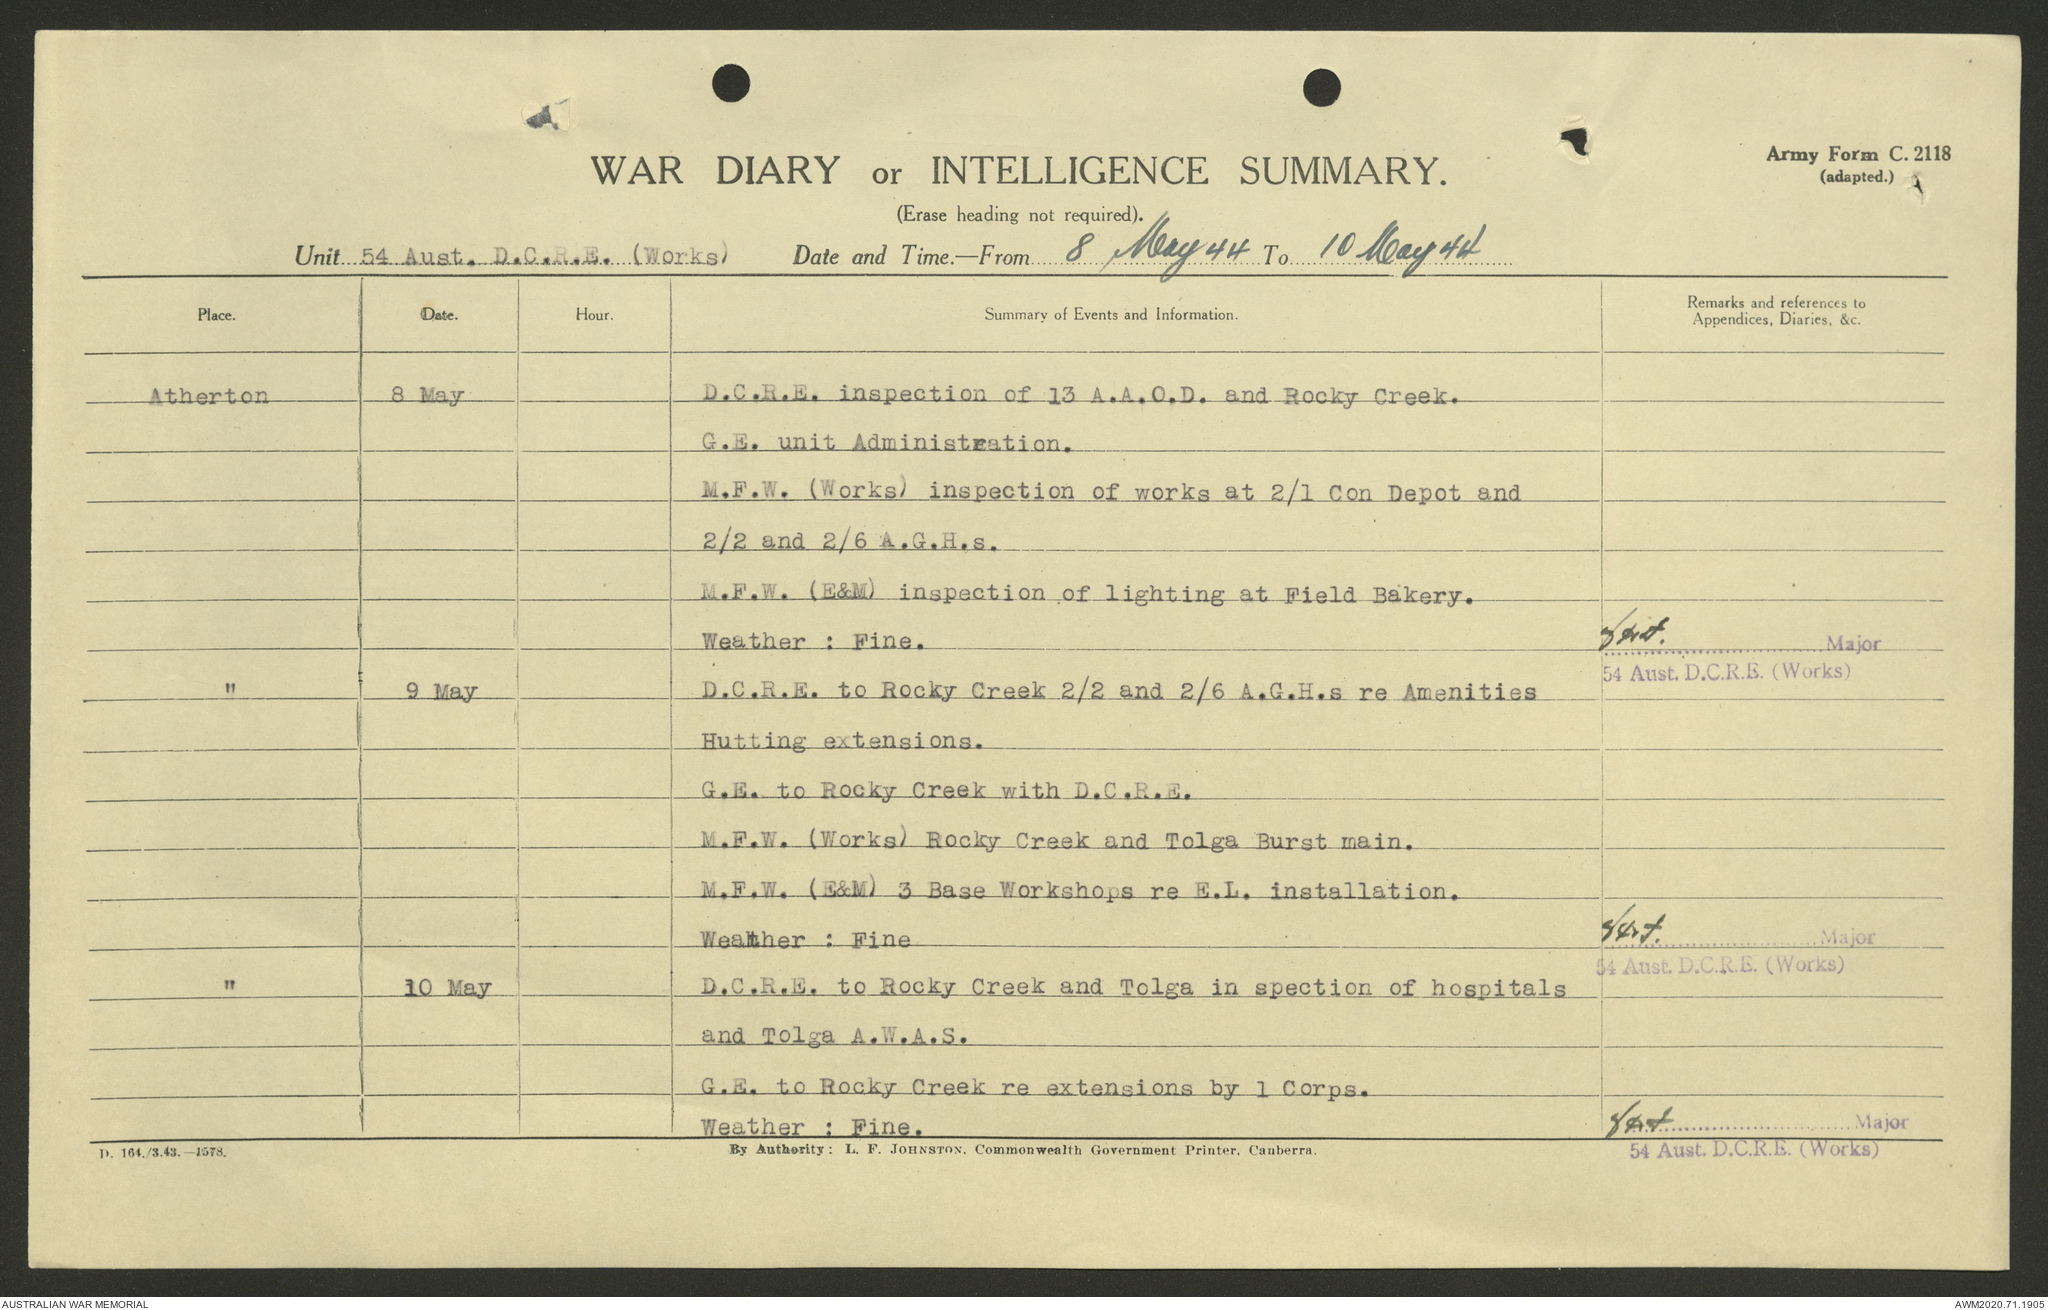 WAR DIARY or INTELLIGENCE SUMMARY.
Army Form C. 2118
(adapted.)
(Erase heading not required).
Unit 54 Aust. D.C.R.E. (Works) Date and Time.—From 8 May 44 To 10 May 44
Place. Date. Hour. Summary of Events and Information. Remarks and references to
Appendices, Diaries, &c.
Atherton 8 May D.C.R.E. inspection of 13 A.A.O.D. and Rocky Creek.
G.E. unit Administration.
M.F.W. (Works) inspection of works at 2/1 Con Depot and
2/2 and 2/6 A.G.H.s.
M.F.W. (E&M) inspection of lighting at Field Bakery.
Weather : Fine. Major
54 Aust. D.C.R.E. (Works)
" 9 May D.C.R.E. to Rocky Creek 2/2 and 2/6 A.G.H.s re Amenities
Hutting extensions.
G.E. to Rocky Creek with D.C.R.E.
M.F.W. (Works) Rocky Creek and Tolga Burst main.
M.F.W. (E&M) 3 Base Workshops re E.L. installation.
Weather : Fine Major
54 Aust. D.C.R.E. (Works)
" 10 May D.C.R.E. to Rocky Creek and Tolga in spection of hospitals
and Tolga A.W.A.S.
G.E. to Rocky Creek re extensions by 1 Corps.
Weather : Fine. Major
54 Aust. D.C.R.E. (Works)
D. 164./3.43.—1578. By Authority: L. F. JOHNSTON, Commonwealth Government Printer, Canberra.
AUSTRALIAN WAR MEMORIAL AWM2020.71.1905